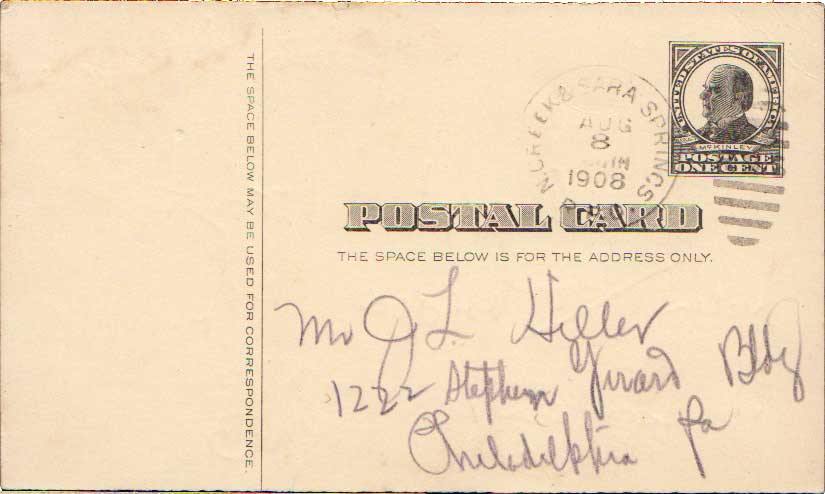 THE SPACE BELOW MAY BE USED FOR CORRESPONDENCE.
UNITED STATES OF AMERICA
McKINLEY
POSTAGE
ONE CENT
N.CREEK & SARA SPRINGS
AUG
8
1908
POSTAL CARD
THE SPACE BELOW IS FOR THE ADDRESS ONLY.
Mr J L Heller
1222 Stephen Girard Bldg
Philadelphia Pa